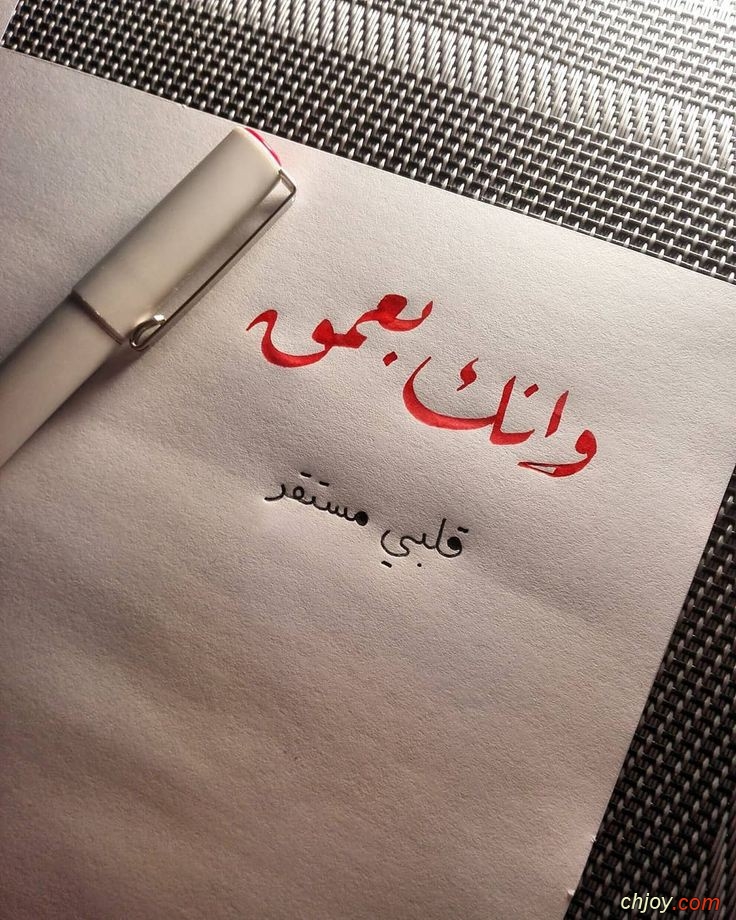 وانك بعمق
قلبي مستقر
chjoy.com